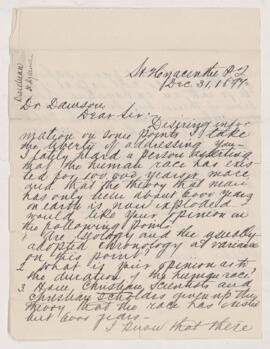 St Hyacinthe P.Q
Dec 31, 1897.
Dr Dawson,
Dear Sir:-
Desiring infor
mation on some points I take
the liberty of addressing you-
I lately heard a person
that the human race has exis
ted for 100.000 years or more
and that the theory that man
has only been about 6000 years
on earth is now exploded-
would like your opinion on
the following points
1 Are Geology and the usually
adopted chronology at variance
on this point?
2 What is your opinion as to
the duration of the human race?
3 Have Christian Scientists and
Christian Scholars given up the
theory that the race has existed
but 6000 years-
I know that there